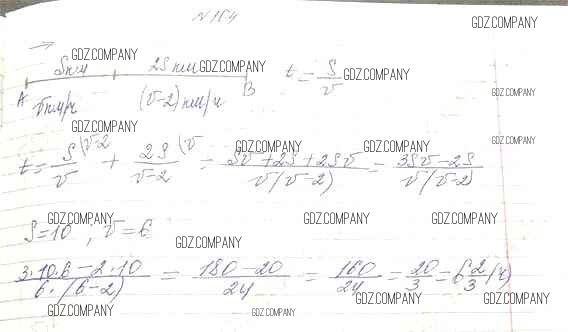 N 164
GDZ.COMPANY
S км GDZ.COMPANY 2S км GDZ.COMPANY t = S/v GDZ.COMPANY
A v км/ч (v-2) км/ч B GDZ.COMPANY
GDZ.COMPANY GDZ.COMPANY
t = S/v (v-2 + 2S/(v-2) (v = (Sv + 2S + 2Sv)/(v(v-2)) = (3Sv-2S)/(v(v-2)
GDZ.COMPANY GDZ.COMPANY
GDZ.COMPANY GDZ.COMPANY GDZ.COMPANY
S=10, v=6
GDZ.COMPANY
(3·10·6-2·10)/(6·(6-2)) = (180-20)/24 = 160/24 = 20/3 = 6 2/3 (ч)
GDZ.COMPANY GDZ.COMPANY GDZ.COMPANY GDZ.COMPANY